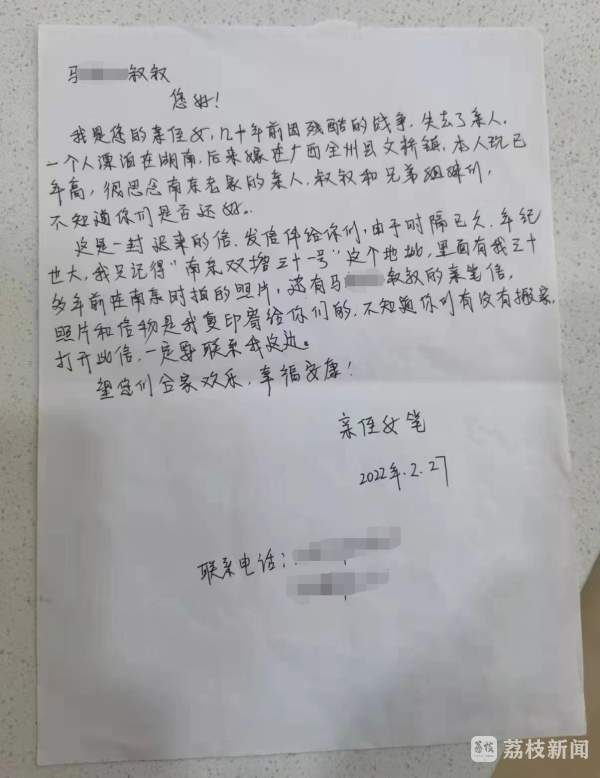 马 叔叔
您好！
我是您的亲侄女，几十年前因残酷的战争，失去了亲人。
一个人漂泊在湖南，后来嫁在广西全州县文桥镇，本人现已
年高，很思念南京老家的亲人，叔叔和兄弟姐妹们，
不知道你们是否还好。
这是一封迟来的信，发信件给你们，由于时隔已久，年纪
也大，我只记得“南京双塘三十一号”这个地址，里面有我三十
多年前在南京时拍的照片，还有马 叔叔的亲笔信，
照片和信物是我复印寄给你们的，不知道你们有没有搬家，
打开此信，一定要联系我这边。
望您们合家欢乐，幸福安康！
亲侄女笔
2022年.2.27
联系电话：
荔枝
荔枝新闻